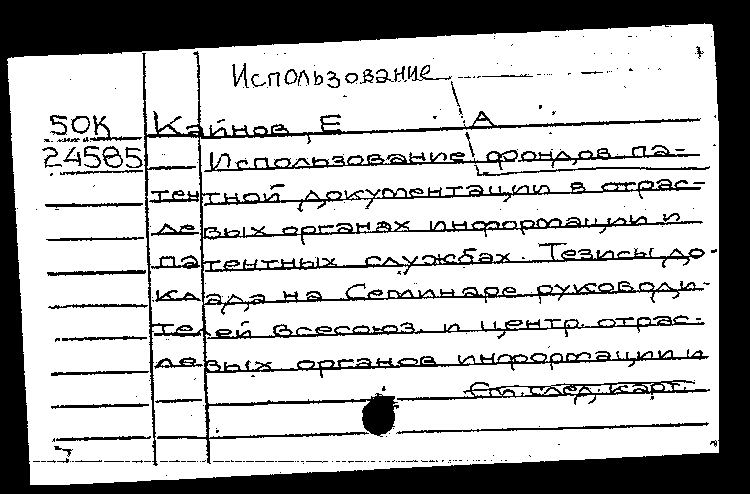 Использование
50К Кайнов, Е А
24585 Использование фондов па-
тентной документации в отрас-
левых органах информации и
патентных службах. Тезисы до-
клада на Семинаре руководи-
телей Всесоюз. и центр. отрас-
левых органов информации и
См. след. карт.